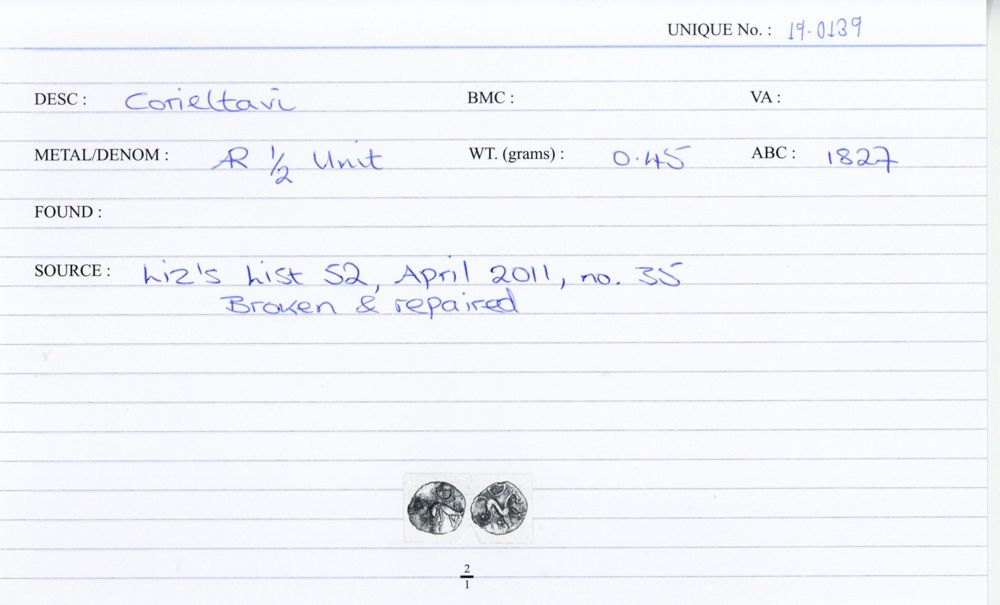 UNIQUE No. : 19-0139
DESC : Corieltavi BMC : VA :
METAL/DENOM : AR 1/2 Unit WT. (grams) : 0.45 ABC : 1827
FOUND :
SOURCE : Liz's List 52, April 2011, no. 35
Broken & repaired
2
1